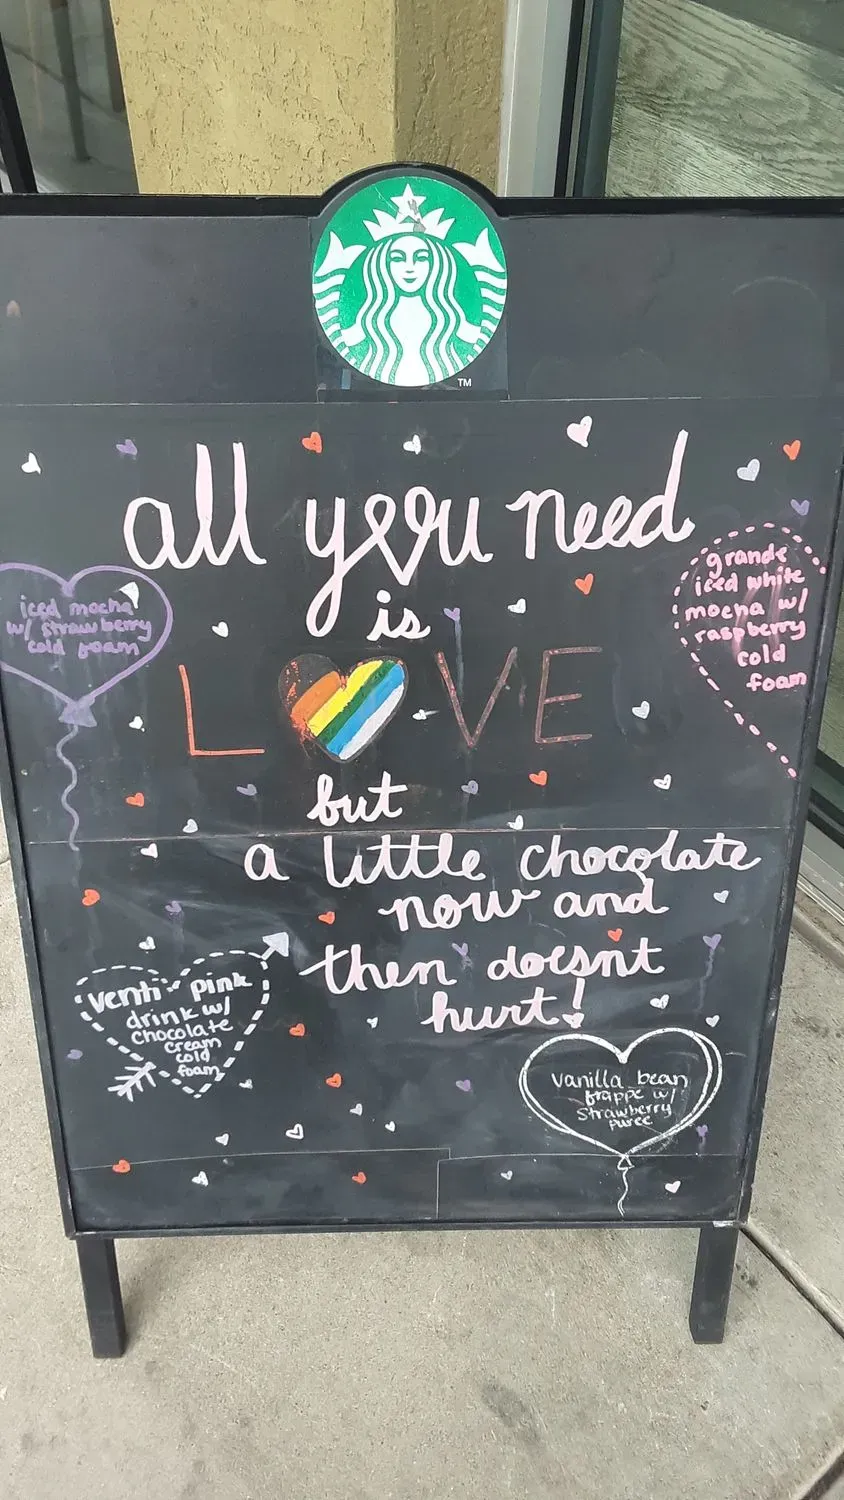 TM
all you need
is
LOVE
but
a little chocolate
now and
then doesnt
hurt!
iced mocha
w/ strawberry
cold foam
grande
iced white
mocha w/
raspberry
cold
foam
venti pink
drink w/
chocolate
cream
cold
foam
vanilla bean
frappe w/
strawberry
puree